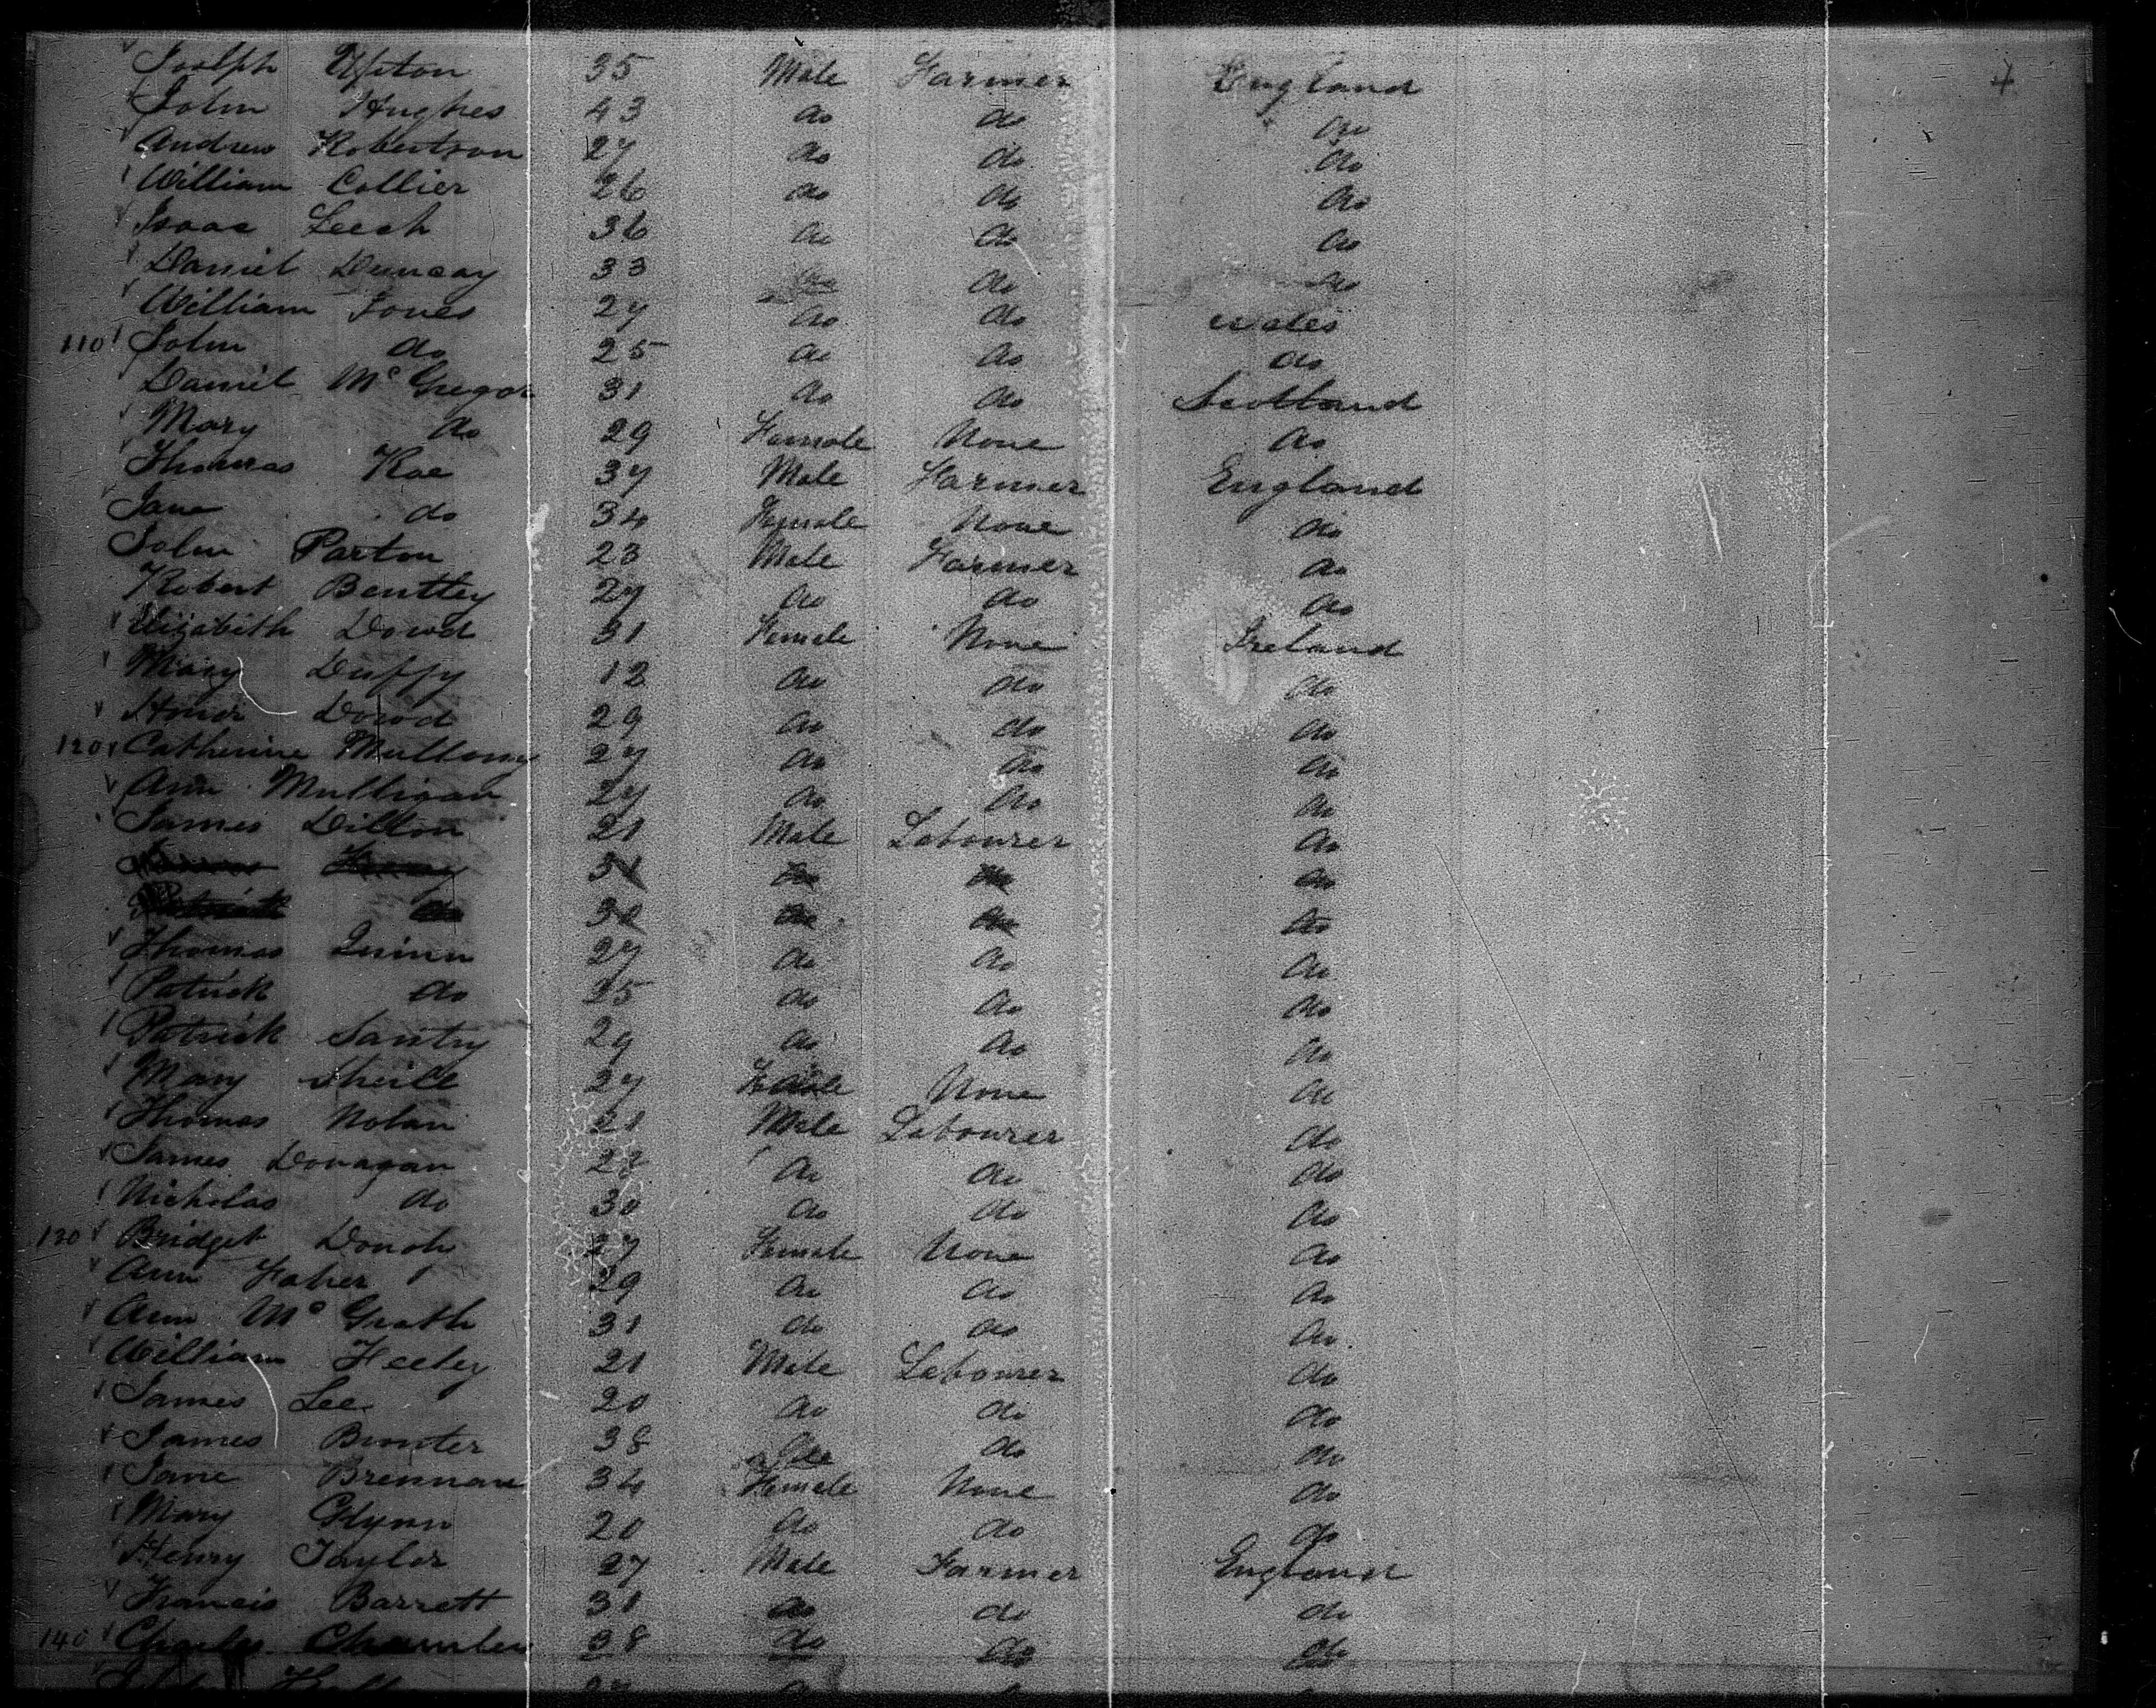 Joolph Upton 35 Male Farmer England 4
John Hughes 43 do do do
Andrew Robertson 27 do do do
William Collier 26 do do do
Isaac Leech 36 do do do
Daniel Duncay 33 do do do
William Jones 27 do do Wales
110 John do 25 do do do
Daniel McGregor 31 do do Scotland
Mary do 29 Female None do
Thomas Rae 37 Male Farmer England
Jane do 34 Female None do
John Parton 23 Male Farmer do
Robert Bentley 27 do do do
Elizabeth Dowd 31 Female None Ireland
Mary Duffy 12 do do do
Honor Dowd 29 do do do
120 Catherine Mullony 27 do do do
Ann Mulligan 24 do do do
James Dillon 21 Male Labourer do
do
Patrick do do do do
Thomas Quinn 27 do do do
Patrick do 25 do do do
Patrick Santry 29 do do do
Mary Sheill 27 None do
Thomas Nolan 21 Male Labourer do
James Donagan do do do
Nicholas do 30 do do do
130 Bridget 27 Female None do
Ann Faher 29 do do do
Ann McGrath 31 do do do
William Feeley 21 Male Labourer do
James Lee 20 do do do
James Brouter 38 do do do
Jane Brennan 34 Female None do
Mary Glynn 20 do do do
Henry Taylor 27 Male Farmer England
Francis Barrett 31 do do do
140 Charles Chamber 38 do do do
Hall